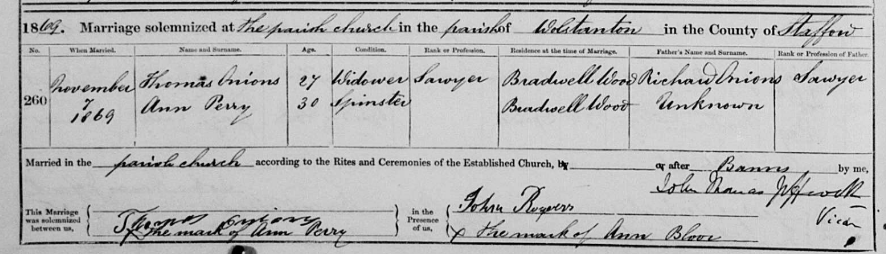 1869. Marriage solemnized at the parish church in the parish of Wolstanton in the County of Stafford
No. When Married. Name and Surname. Age. Condition. Rank or Profession. Residence at the time of Marriage. Father's Name and Surname. Rank or Profession of Father.
260 November 7 1869 Thomas Onions 27 Widower Sawyer Bradwell Wood Richard Onions Sawyer
Ann Perry 30 Spinster Bradwell Wood Unknown
Married in the parish church according to the Rites and Ceremonies of the Established Church, by or after Banns by me,
John Thomas
Vicar
This Marriage was solemnized between us, Thomas Onions
X The mark of Ann Perry
in the Presence of us, John Rogers
X The mark of Ann